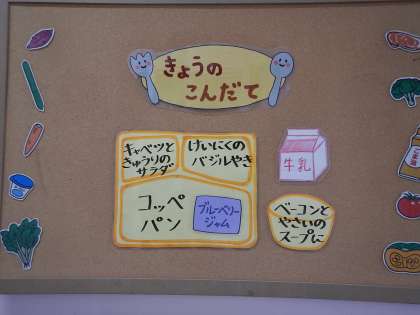 きょうの
こんだて
キャベツと
きゅうりの
サラダ
けいにくの
バジルやき
牛乳
コッペ
パン
ブルーベリー
ジャム
ベーコンと
やさいの
スープに